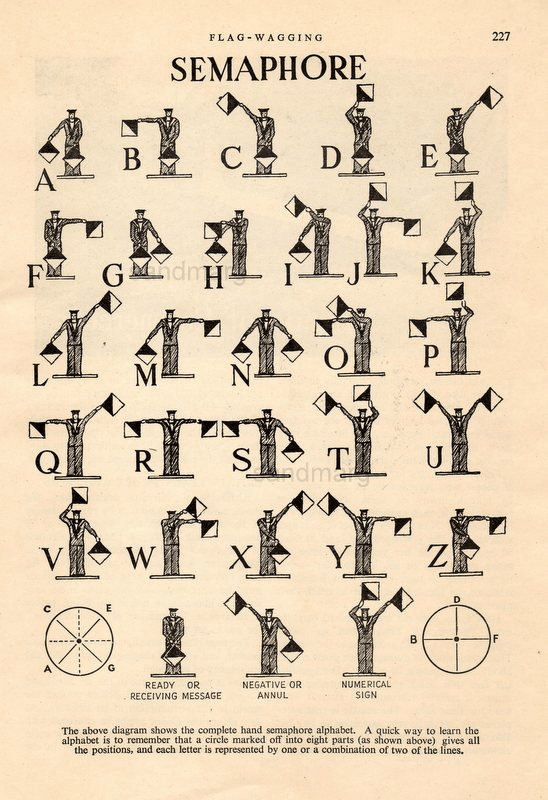 FLAG-WAGGING 227
SEMAPHORE
A B C D E
F G H I J K
sandmarg
L M N O P
Q R S T U
sandmarg
V W X Y Z
C E
A G
D
B F
READY OR
RECEIVING MESSAGE
NEGATIVE OR
ANNUL
NUMERICAL
SIGN
The above diagram shows the complete hand semaphore alphabet. A quick way to learn the
alphabet is to remember that a circle marked off into eight parts (as shown above) gives all
the positions, and each letter is represented by one or a combination of two of the lines.